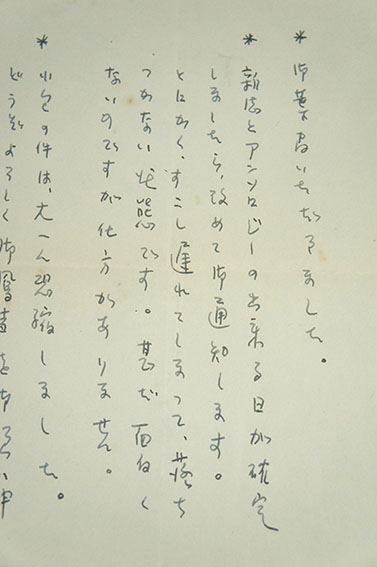 * 御葉書いただきました。
* 新誌とアンソロジーの出来る日が確定
しましたら、改めて御通知します。
とにかく、すこし遅れてしまって、落ち
つかない状態です。甚だ面白く
ないのですが仕方がありません。
* 小包の件は、大へん恐縮しました。
どうぞよろしく御鳳声をおねがい申